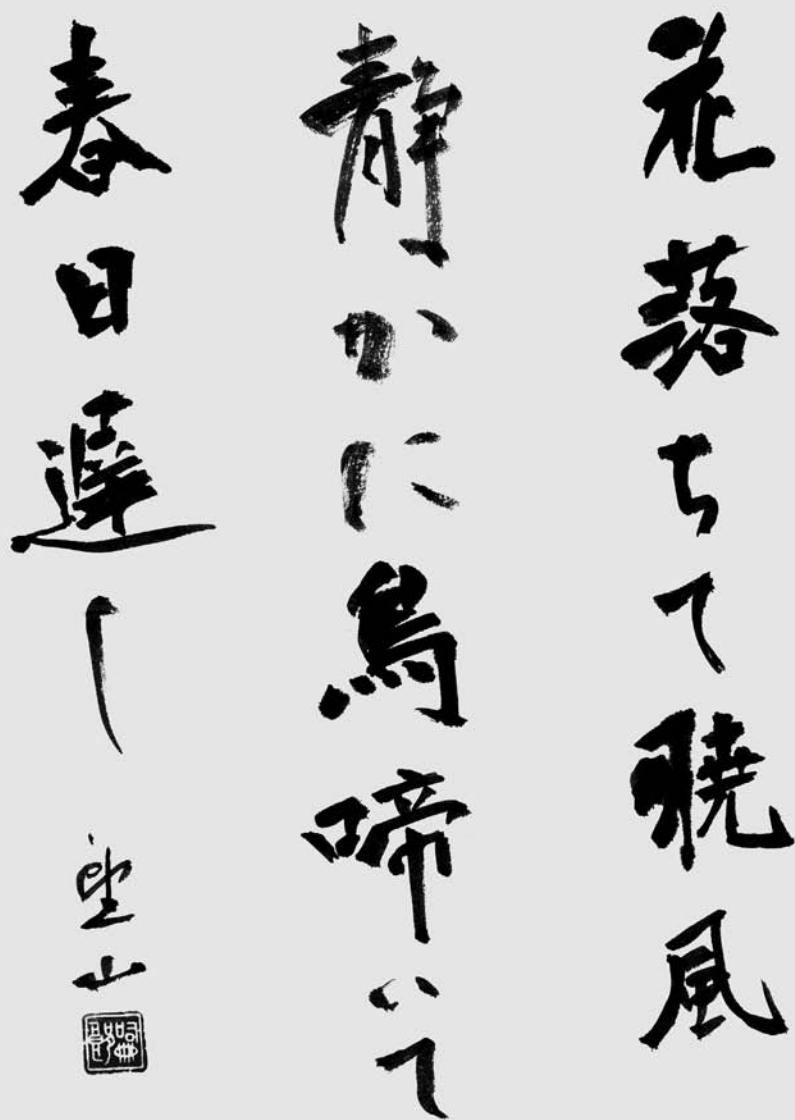 花落ちて暁風
静かに鳥啼いて
春日遅し
望山